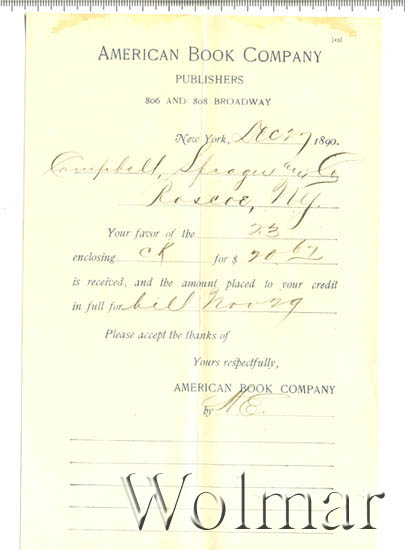 AMERICAN BOOK COMPANY
PUBLISHERS
806 AND 808 BROADWAY
New York, Dec 27 1890.
Campbell, Sprague and Co
Roscoe, NY.
Your favor of the 23
enclosing ck for $ 20.62
is received, and the amount placed to your credit
in full for bill Nov 29
Please accept the thanks of
Yours respectfully,
AMERICAN BOOK COMPANY
by
Wolmar